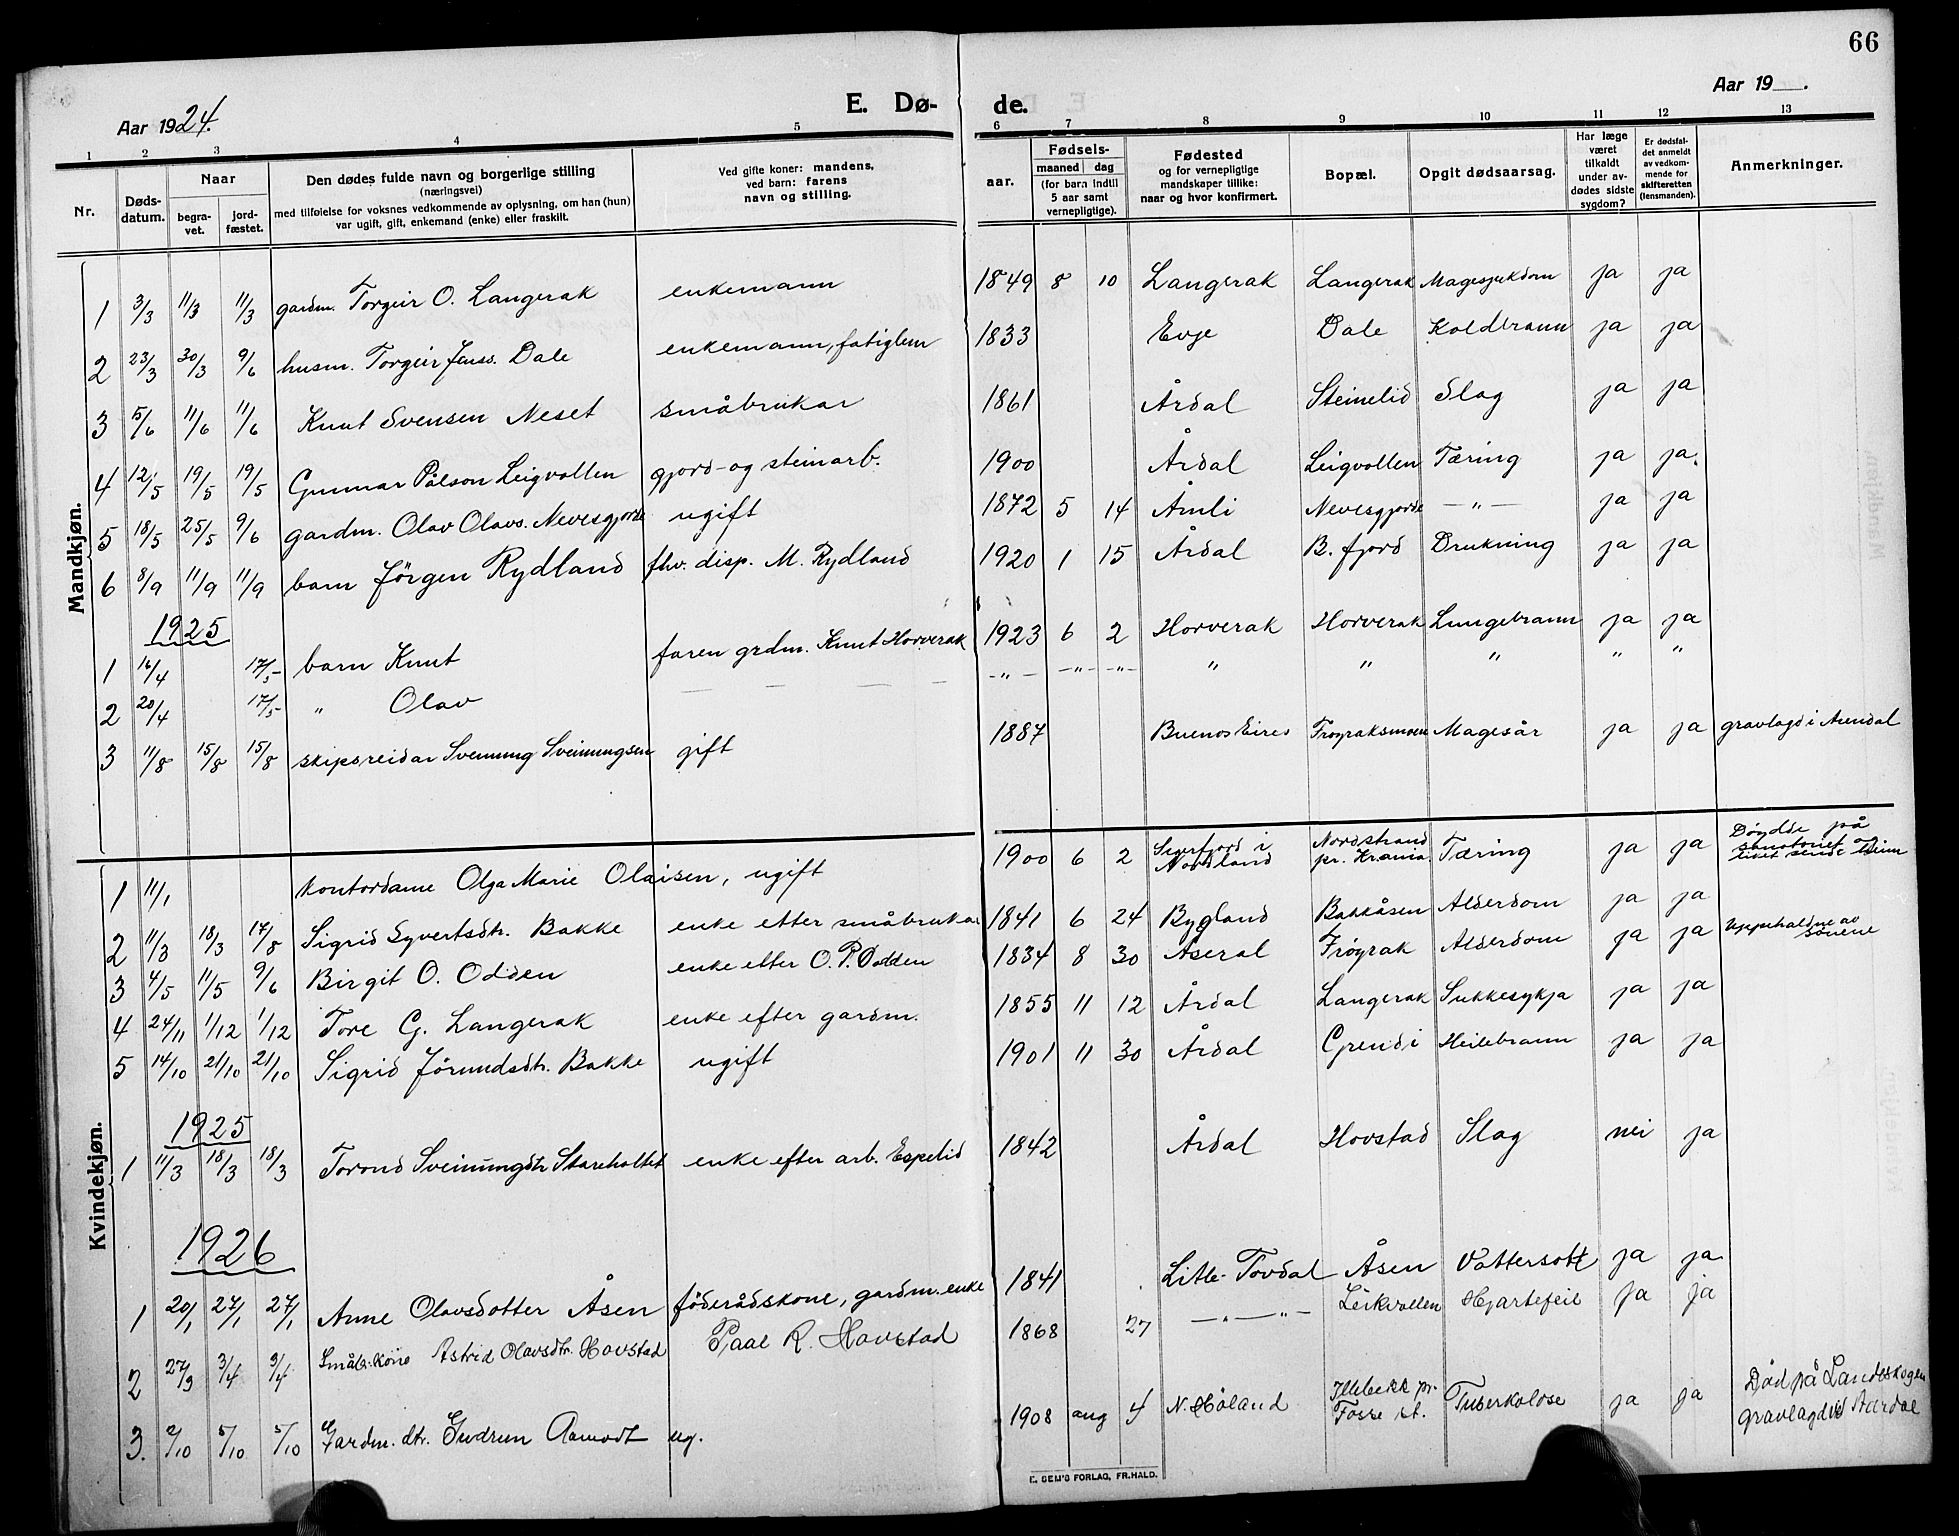 66
Aar 1924.
E. Dø-
de.
Aar 19 .
1 2 3 4 5 6 7 8 9 10 11 12 13
Nr.
Døds-datum.
Naar
begra-vet.
jord-fæstet.
Den dødes fulde navn og borgerlige stilling
(næringsvei)
med tilføielse for voksnes vedkommende av oplysning, om han (hun)
var ugift, gift, enkemand (enke) eller fraskilt.
Ved gifte koner: mandens,
ved barn: farens
navn og stilling.
aar.
Fødsels-
maaned dag
(for barn indtil
5 aar samt
vernepligtige).
Fødested
og for vernepligtige
mandskaper tillike:
naar og hvor konfirmert.
Bopæl.
Opgit dødsaarsag.
Har læge
været
tilkaldt
under av-
dødes sidste
sygdom?
Er dødsfal-
det anmeldt
av vedkom-
mende for
skifteretten
(lensmanden).
Anmerkninger.
Mandkjøn.
1 3/3 11/3 11/3 gardm. Torgeir O. Langerak enkemann 1849 8 10 Langerak Langerak Magesjukdom ja ja
2 23/3 30/3 9/6 husm. Torgeir Jenss. Dale enkemann, fatiglem 1833 Evje Dale Koldbrann ja ja
3 5/6 11/6 11/6 Knut Svensen Neset småbrukar 1861 Årdal Steinelid Slag ja ja
4 12/5 19/5 19/5 Gunnar Pålson Leigvollen gjord- og steinarb. 1900 Årdal Leigvollen Tæring ja ja.
5 18/5 25/5 9/6 gardm. Olav Olavs. Nevesgjorde ugift 1872 5 14 Åmli Nevesgjorde — „ — ja ja
6 8/9 11/9 11/9 barn Jörgen Rydland fhv. disp. M. Rydland 1920 1 15 Årdal B. fjord Drukning ja ja
1925
1 16/4 17/5 barn Knut faren grdm. Knut Horverak 1923 6 2 Horverak Horverak Lungebrann ja ja
2 20/4 17/5 „ Olav — — — — — „ — — „ — — „ — „ „ „ „ „
3 11/8 15/8 15/8 skipsreidar Sveinung Sveinungsen gift 1887 Buenos Eires Frøyraksmoen Magesår ja ja gravlagd i Arendal
Kvindekjøn.
1 11/1 Kontordame Olga Marie Olaisen, ugift 1900 6 2 i Nordland Nordstrand pr. Krania Tæring ja ja Døydde på sanatoriet og liket sendt heim
2 11/3 18/3 17/8 Sigrid Syvertsdtr. Bakke enke etter småbrukar 1841 6 24 Bygland Bakkåsen Alderdom ja ja
3 4/5 11/5 9/6 Birgit O. Odden enke etter O. P. Odden 1834 8 30 Åseral Frøyrak Alderdom ja ja Uppehaldne av sönene
4 24/11 1/12 1/12 Tore G. Langerak enke efter gardm. 1855 11 12 Årdal Langerak Sukkesykja ja ja
5 14/10 21/10 21/10 Sigrid Jörundsdtr. Bakke ugift 1901 11 30 Årdal Grendi Heilebrann ja ja
1925
1 11/3 18/3 18/3 Torond Sveinungsdtr Stareholtet enke efter arb. Espelid 1842 Årdal Hovstad Slag nei ja
1926
1 20/1 27/1 27/1 Anne Olavsdotter Åsen föderådskone, gardm.enke 1841 Litle-Tovdal Åsen Vattersott ja ja
2 27/3 3/4 3/4 Småbr.kone Astrid Olavsdtr. Hovstad Paal R. Hovstad 1868 27 — „ — „ — Leikvollen Hjartefeil ja ja
3. 2/10 5/10 5/10 Gardm. dtr. Gudrun Aamodt ug. 1908 aug 4 N. Høland Illebekk pr. Fosse st. Tuberkolose ja ja Död på Landeskogen gravlagd i Aardal
E. SEM'S FORLAG, FR.HALD.